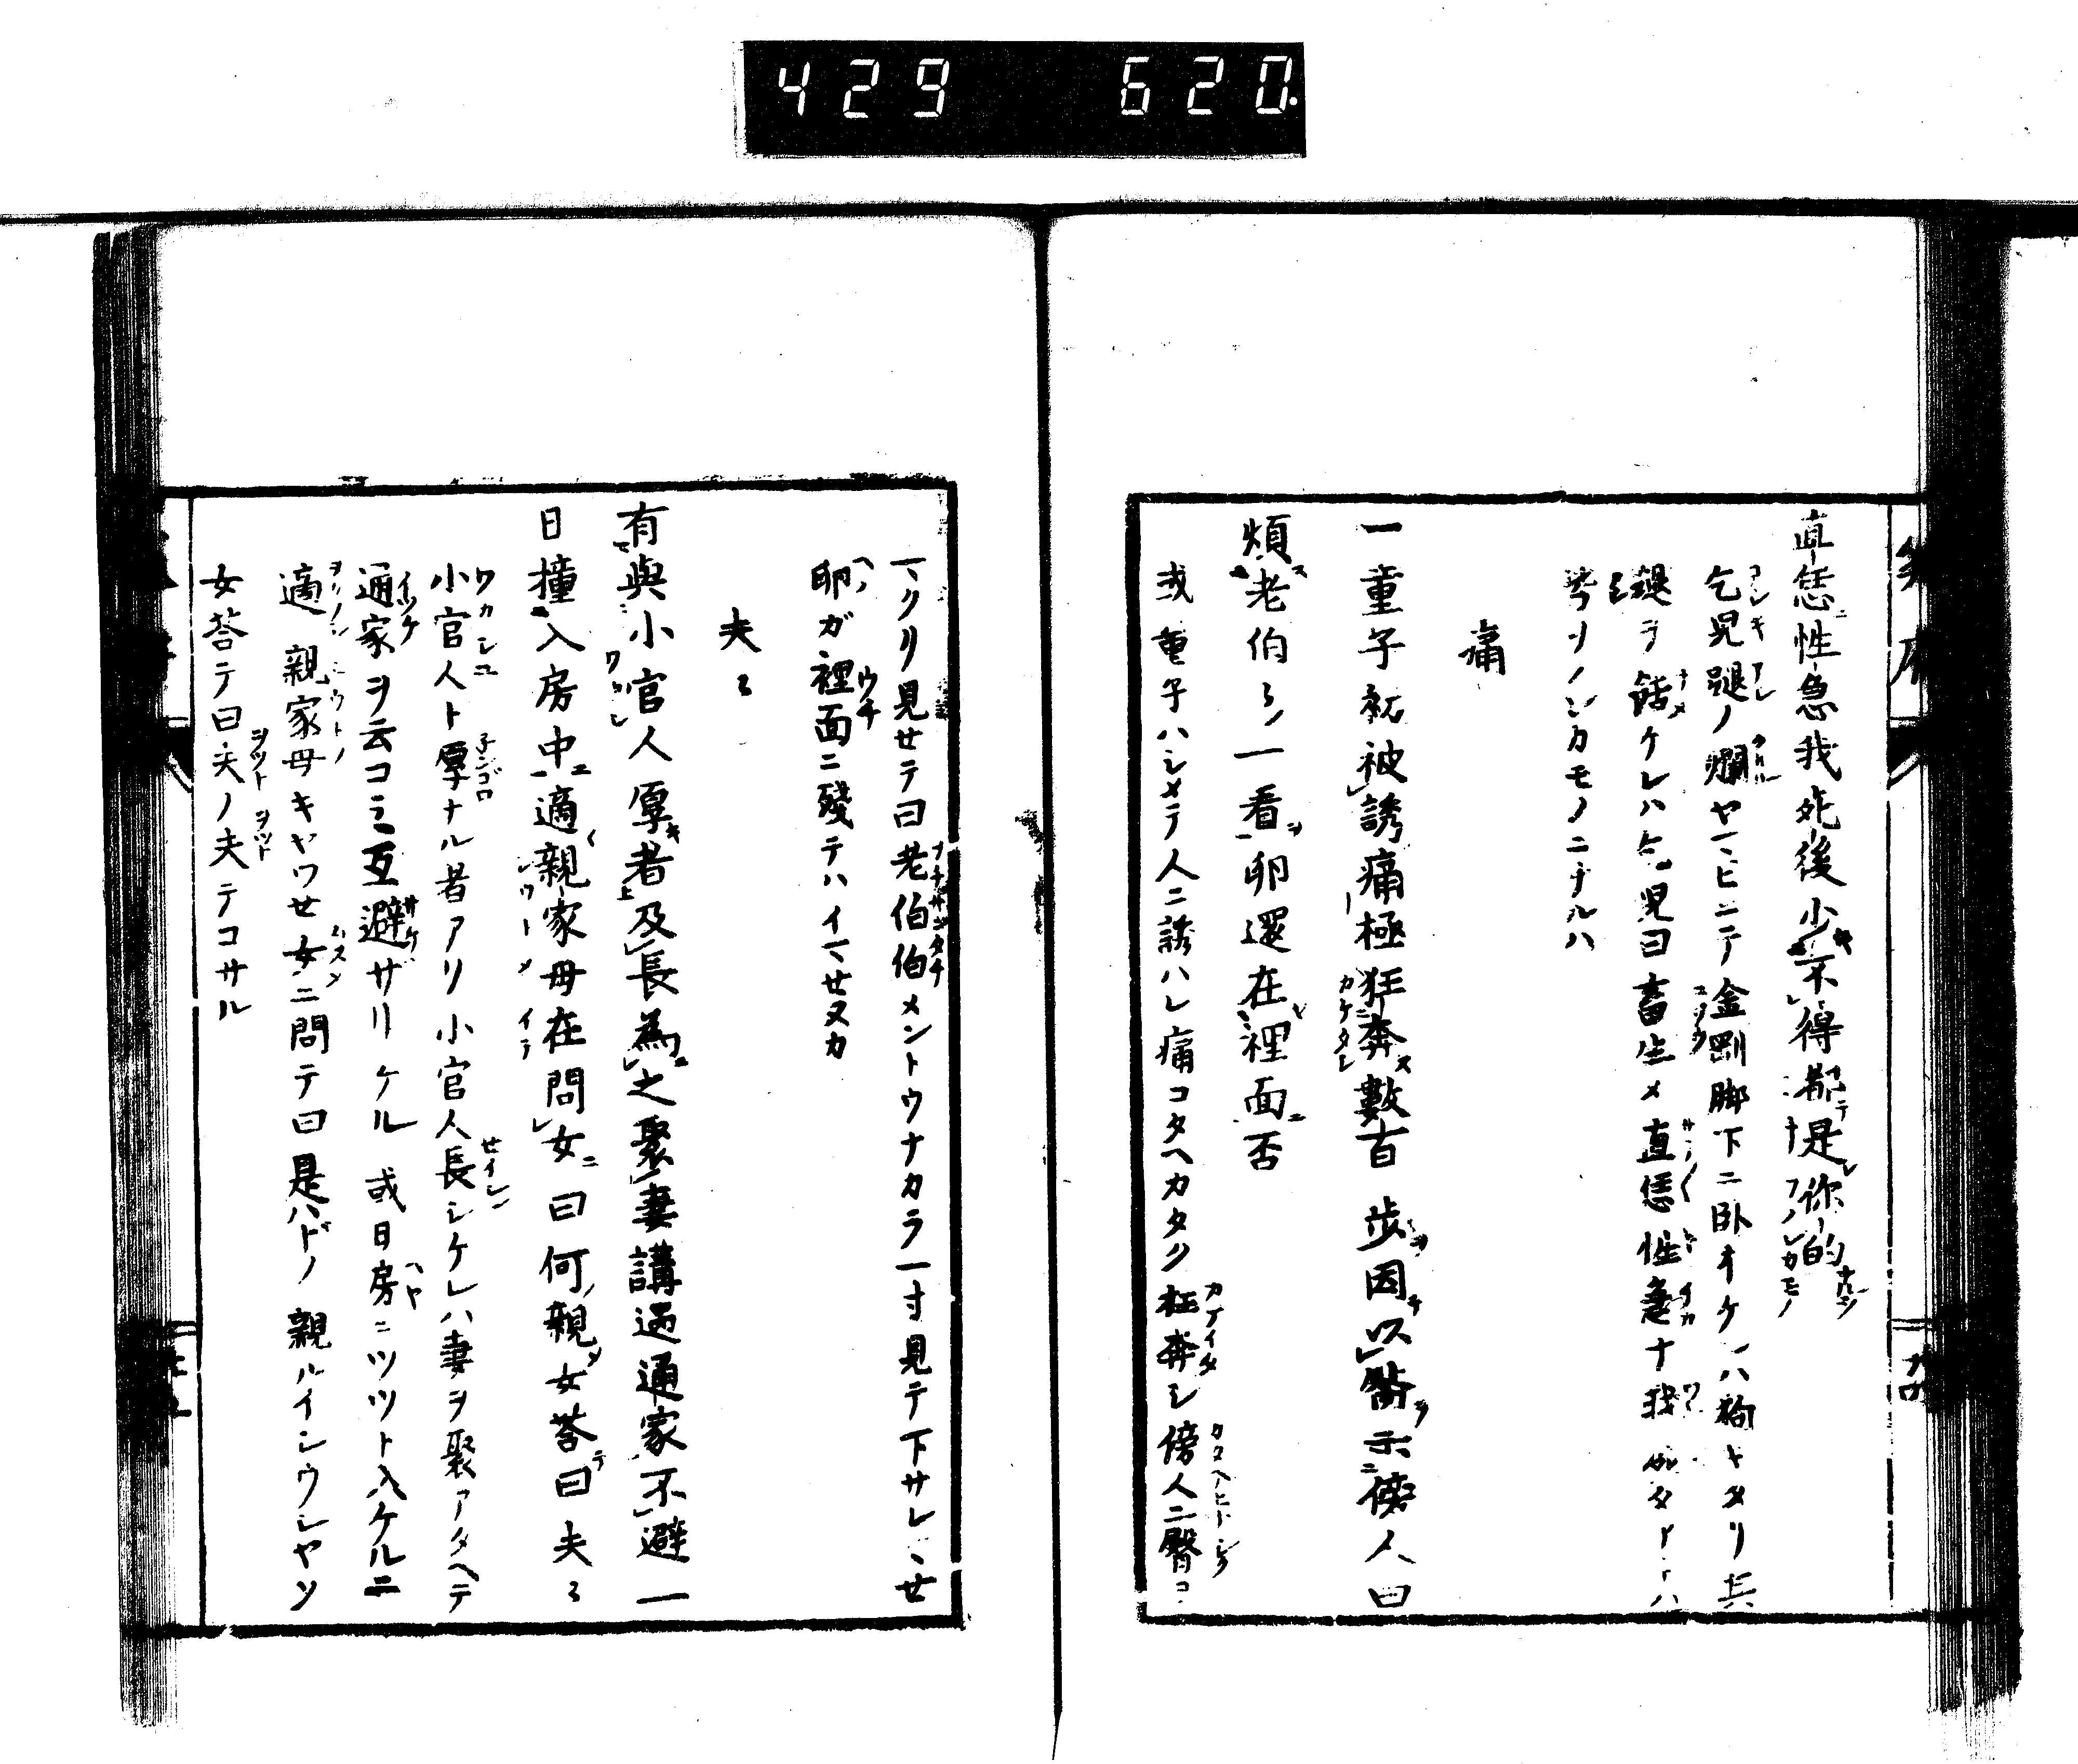 429 620.
笑府
直恁性急我死後少不得都是你的
乞児腿ノ爛ヤマヒニテ金剛脚下ニ臥オケレハ狗キタリ其
腿ヲ餂ケレハ乞児曰畜生メ直恁性急ナ我
ソノシカモノニナルハ
痛
一童子初被誘痛極狂奔數百歩因以臀示傍人曰
煩老伯々一看卵還在裡面否
或童子ハシメテ人ニ誘ハレ痛コタヘカタク狂奔シ傍人ニ臀ヲ
マクリ見セテ曰老伯伯メントウナカラ一寸見テ下サレマセ
卵ガ裡面ニ殘テハイマセヌカ
夫々
有與小官人厚者及長為之聚妻講過通家不避一
日撞入房中適親家母在問女曰何親女答曰夫々
小官人ト厚ナル者アリ小官人長シケレハ妻ヲ聚アタヘテ
通家ヲ云コミ互避ザリケル或日房ニツツト入ケルニ
適親家母キヤワせ女ニ問テ曰是ハドノ親ルイシウシヤソ
女答テ曰夫ノ夫テコサル